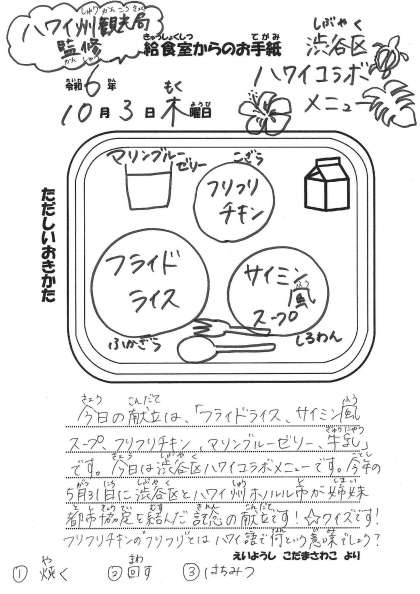 ハワイ州観光局
監修
給食室からのお手紙
渋谷区
ハワイコラボ
メニュー
令和6年
10月3日木曜日
ただしいおきかた
マリンブルー
ゼリー
こざら
フリフリ
チキン
フライド
ライス
ふかざら
サイミン
風
スープ
しろわん
今日の献立は、「フライドライス、サイミン風
スープ、フリフリチキン、マリンブルーゼリー、牛乳」
です。今日は渋谷区ハワイコラボメニューです。今年の
5月31日に渋谷区とハワイ州ホノルル市が姉妹
都市協定を結んだ記念の献立です!☆クイズです!
フリフリチキンの"フリフリ"とはハワイ語で何という意味でしょう?
えいようし こだまさわこ より
①焼く ②回す ③はちみつ